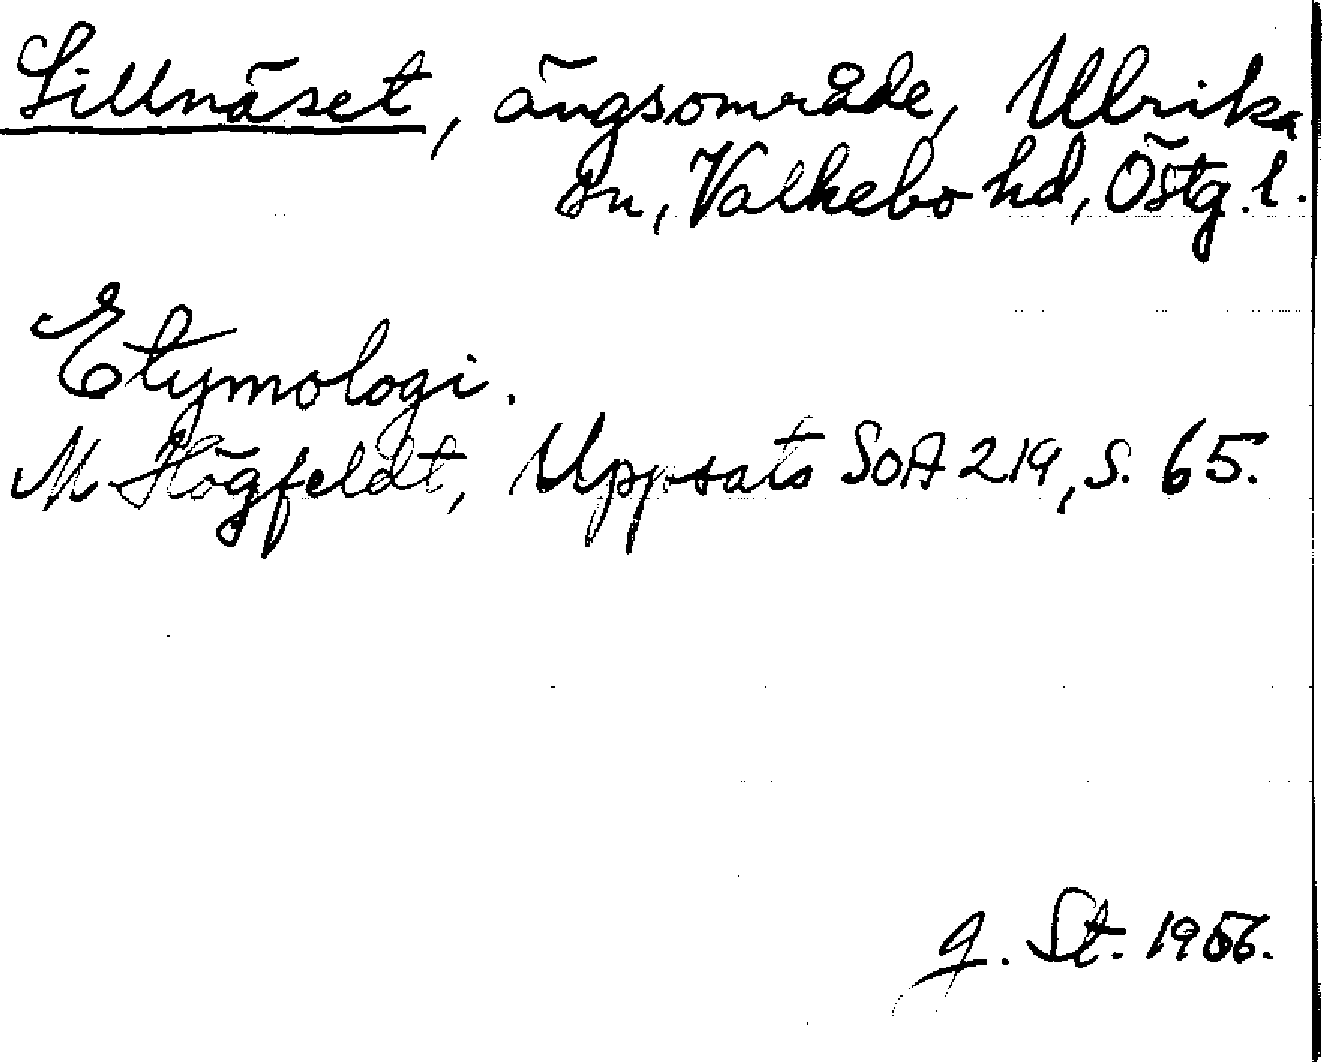 Sillnäset, ängsområde, Ulrika
sn, Valkebo hd, Östg. l.
Etymologi.
M Högfeldt, Uppsats SOA 219, S. 65.
G. St. 1956.